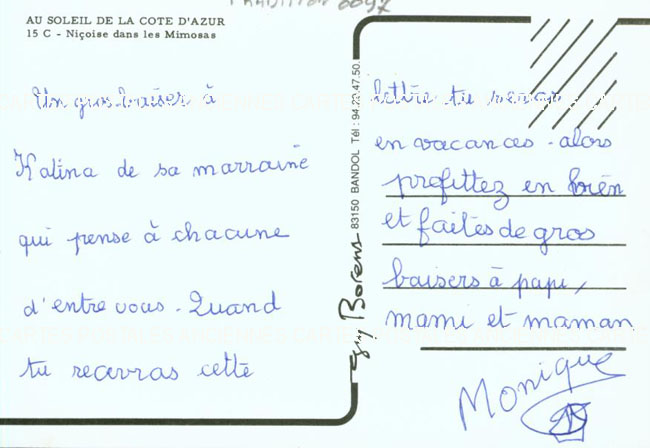 AU SOLEIL DE LA COTE D'AZUR
15 C - Niçoise dans les Mimosas
Un gros baiser à
Katina de sa marraine
qui pense à chacune
d'entre vous. Quand
tu recevras cette
Guy Borens 83150 BANDOL Tél : 94.29.47.50.
lettre tu seras
en vacances - alors
profittez en bien
et faites de gros
baisers à papi,
mami et maman
Monique